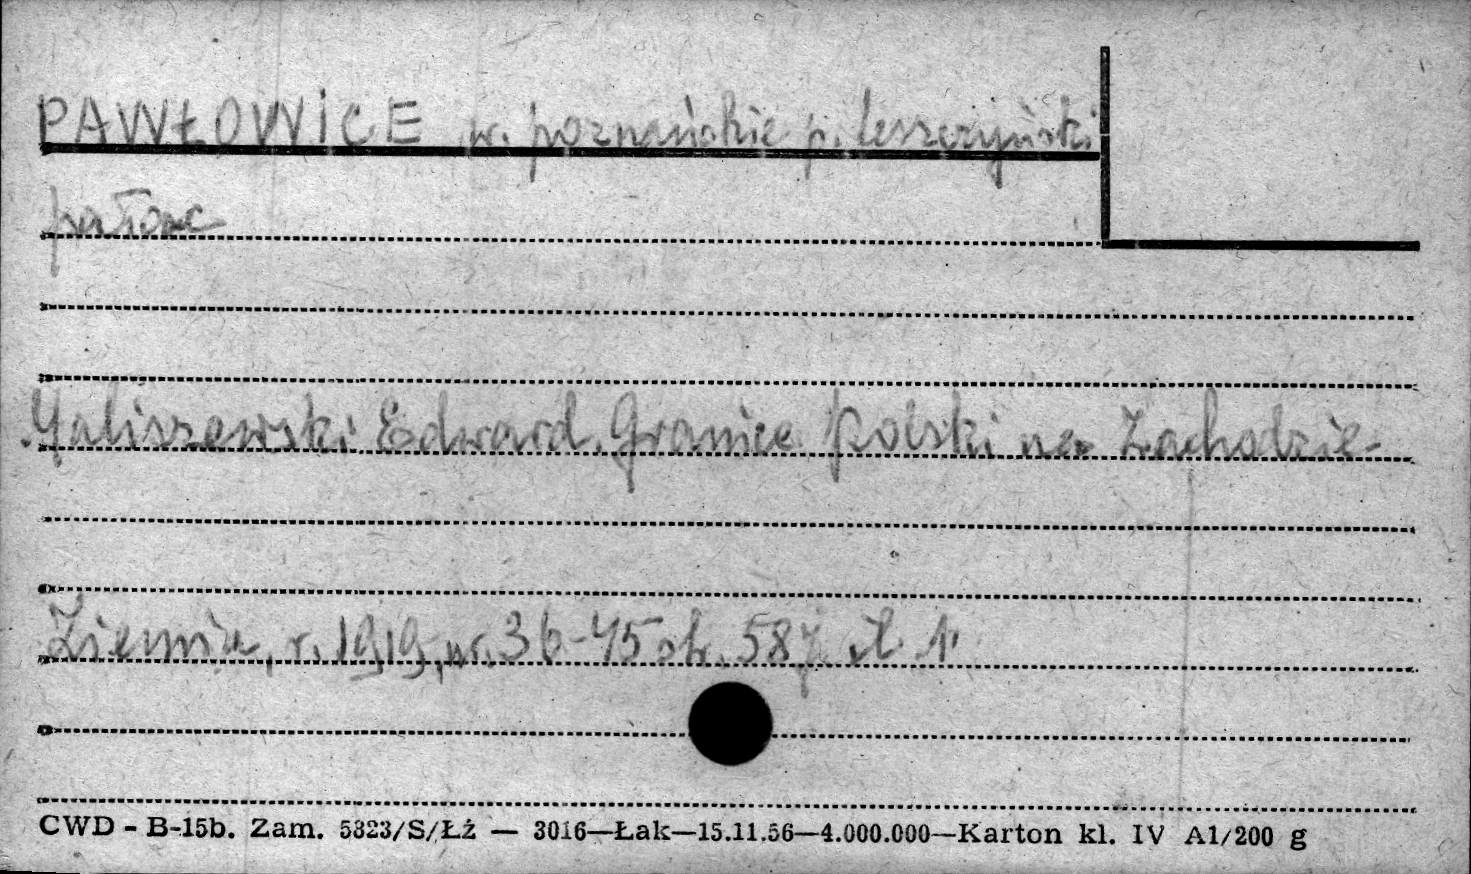 PAWŁOWICE w. poznańskie p. leszczyński
pałac
Maliszewski Edward. Granice Polski na Zachodzie-
Ziemia, r. 1919, nr. 36-45 str. 587 il. 1.
CWD - B-15b. Zam. 5323/S/Łź — 3016—Łak—15.11.56—4.000.000—Karton kl. IV A1/200 g